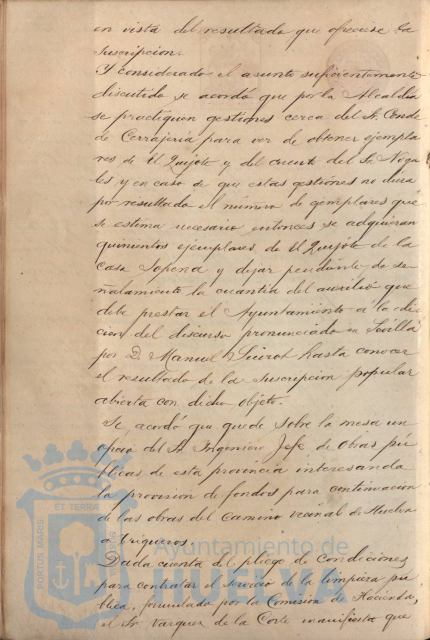 en vista del resultado que ofreciese la
suscripcion.
Y considerado el asunto suficientemente
discutido se acordó que por la Alcaldia
se practiquen gestiones cerca del Sr. Conde
de Cerrajeria para ver de obtener ejempla
res de El Quijote y del cuento del Sr. Noga
les, y en caso de que estas gestiones no diera
por resultado el número de ejemplares que
se estima necesario entonces se adquieran
quinientos ejemplares de El Quijote de la
Casa Sopena y dejar pendiente de se
ñalamiento la cuantia del auxilio que
debe prestar el Ayuntamiento á la edi
cion del discurso pronunciado en Sevilla
por D. Manuel Siurot hasta conocer
el resultado de la suscripcion popular
abierta con dicho objeto.
Se acordó que quede sobre la mesa un
oficio del Sr. Ingeniero Jefe de Obras pú
blicas de esta provincia interesando
la provision de fondos para continuacion
de las obras del Camino vecinal de Huelva
a Trigueros.
Dada cuenta del pliego de Condiciones
para contratar el servicio de la limpieza pú
blica, formulado por la Comision de Hacienda,
el Sr. Vazquez de la Corte manifiesta que
PORTUS MARIS ET TERRAE
Ayuntamiento de
HUELVA